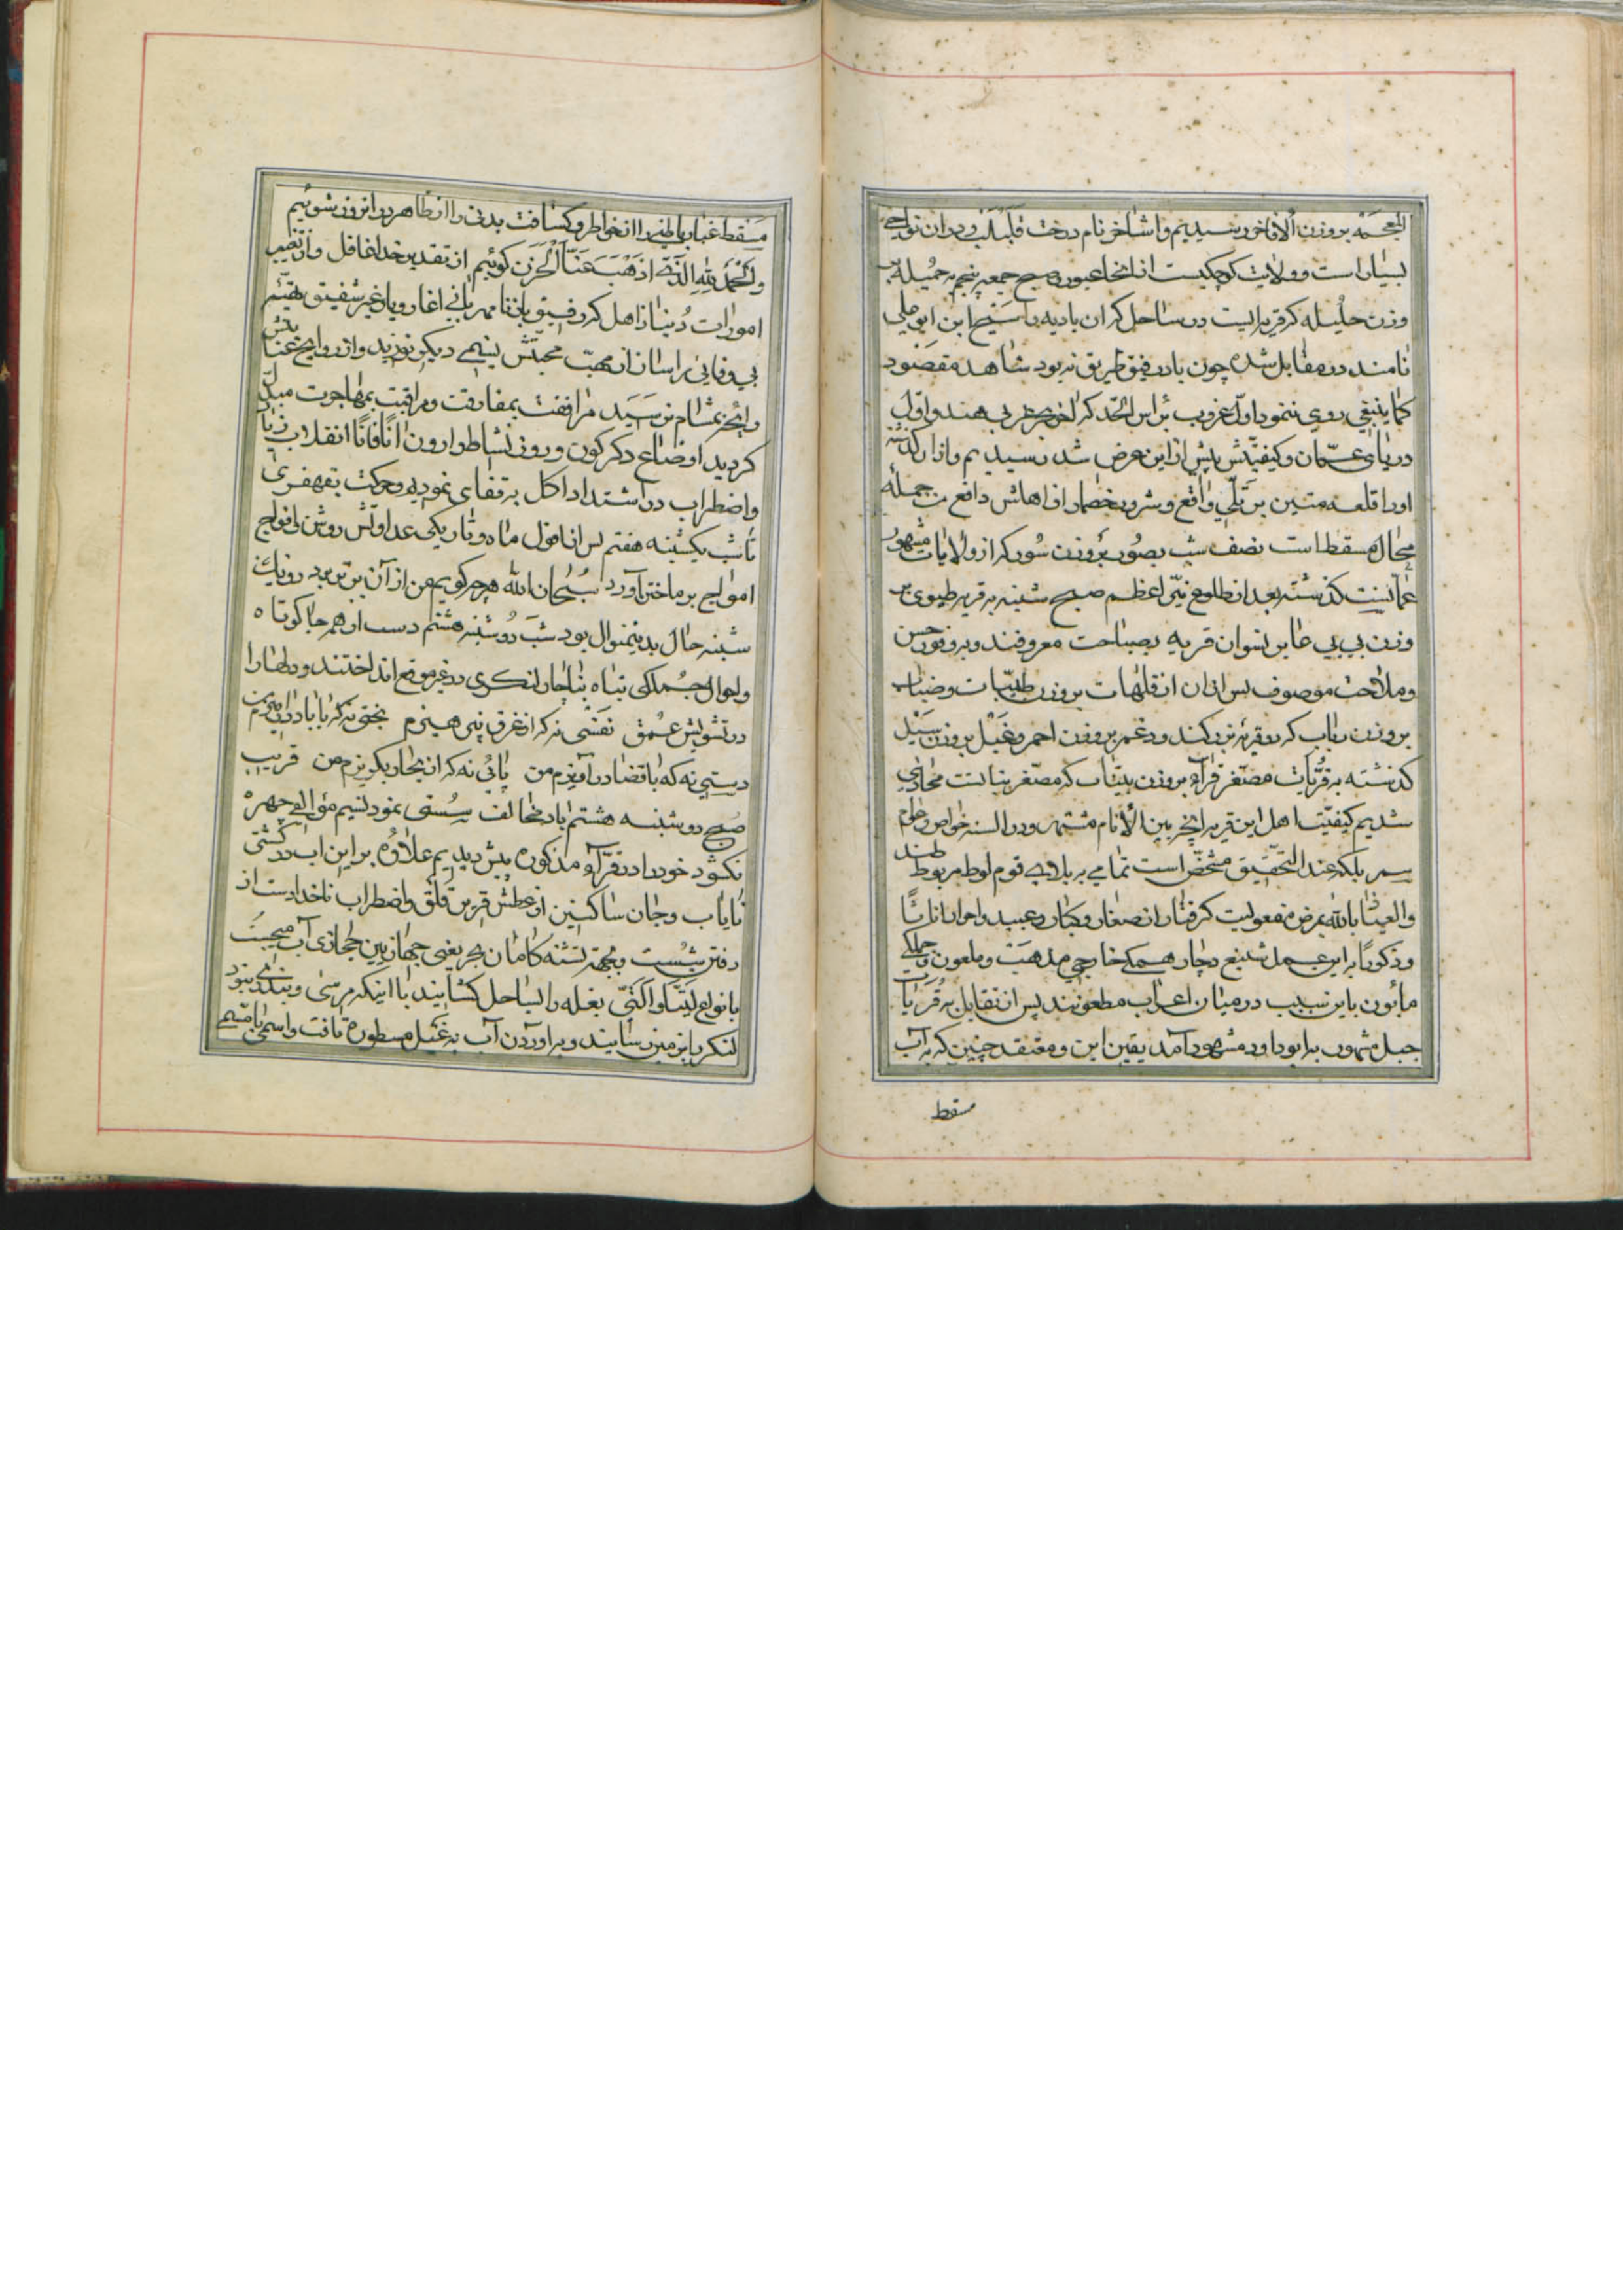 المعجمه بر وزن الافاخر رسیدیم و اشاخر نام درخت است و در ان نواحی
بسیار است و ولایت کوچکیست از انجا عبور و صبح جمعه پنجم به جمیله بر
وزن حلیله که قریه ایست در ساحل که ان بادیه را شیخ ابن ابوعلی
نامند در مقابل شده چون باد رفیق طریق نه بود شاهد مقصود
کما ینبغی روی ننمود اول غروب براس الحد که اخر بحر عربی هند و اول
دریای عمان و کیفیتش پیش از این عرض شد رسیدیم و از ان گذشته
او را قلعه متین بر تلی واقع و شرور خصم را از اهلش دافع من جمله
محال مسقط است نصف شب بصور بر وزن شور که از ولایات مشهور
عمانست گذشته بعد از طلوع نیر اعظم صبح شنبه به قریه طیوی بر
وزن بی بی عابر نسوان قریه بصباحت معروفند و به وفور حسن
و ملاحت موصوف پس از ان از قلهات بر وزن طیبات و ضباب
بر وزن رباب که دو قریه بزرگند و دغمر بر وزن احمر و غبل بر وزن سیل
گذشته به قریات مصغر قرآه بر وزن بنیات که مصغر بنا است محاذی
شدیم کیفیت اهل این قریه انچه بین الانام مشتهر و در السنه خواص و عوام
سمر بلکه عند التحقیق مشخص است تمامی به بلای قوم لوط مربوطند
و العیاذ بالله بمرض مفعولیت گرفتار از صغار و کبار و عبید و احرار اناثا
و ذکورا به این عمل شنیع دچار همگی خارجی مذهب و ملعون و جملگی
مابون باین سبب در میان اعراب مطعونند پس از تقابل به قریات
جبل مشهور به ابو داود مشهود آمد یقین این و معتقد چنین که به آب
مسقط
مسقط غبار باطنی را از خواطر و کثافت بدنی را از ظاهر در انروز شوئیم
و الحمد لله الذی اذهب عنا الحزن گوئیم از تقدیر خدا غافل و از تغییر
امورات دنیا ذاهل که رفیق باد نامهربانی اغاز و یار غیر شفیق هیئم
بی وفایی را ساز از مهب محبتش نسیمی دیگر نوزید و از روایح عنایتش
رایحه بمشام نرسید مرافقت بمفارقت و مراقبت بمهاجرت مبدل
گردید اوضاع دگرگون و روز نشاط وارون آنا فانا انقلاب زیاد
و اضطراب در اشتداد اکل بر قفای نمودیم و حرکت بقهقری
تا شب یکشنبه هفتم پس از افول ماه و تاریکی عداوتش روشن و افواج
امواج بر ما ختن آورد سبحان الله هرچه گویم من از آن بتر بود روز یک
شنبه حال بدینمنوال بود شب دوشنبه هشتم دست از همه جا کوتاه
و احوال جملگی تباه ناچار لنگری در غیر موقع انداختند و دلها را
در تشویش عمق نفسی نه که از غرق پی هیزم بختی نه که با باد در امیزم
دستی نه که با قضا در آمیزم من پائی نه که از میان بگریزم من قریب
صبح دوشنبه هشتم باد مخالف سستی نمود نسیم موالف چهره
نگشود خود را در قرآه مذکوره پیش دیدیم علاوه بر این اب در کشتی
نایاب و جان ساکنین از عطش قرین قلق و اضطراب ناخدا دست از
دفتر شست و بجهة تشنه کامان بحر یعنی جهاز بین حجازی آب میجست
بانواع لیتا و التی بغله را بساحل کشایند با اینکه مرسی و بندری نبود
لنگر بر زمین رسانیند و براوردن آب به غبل مسطوره تافت و اسم با مسمی